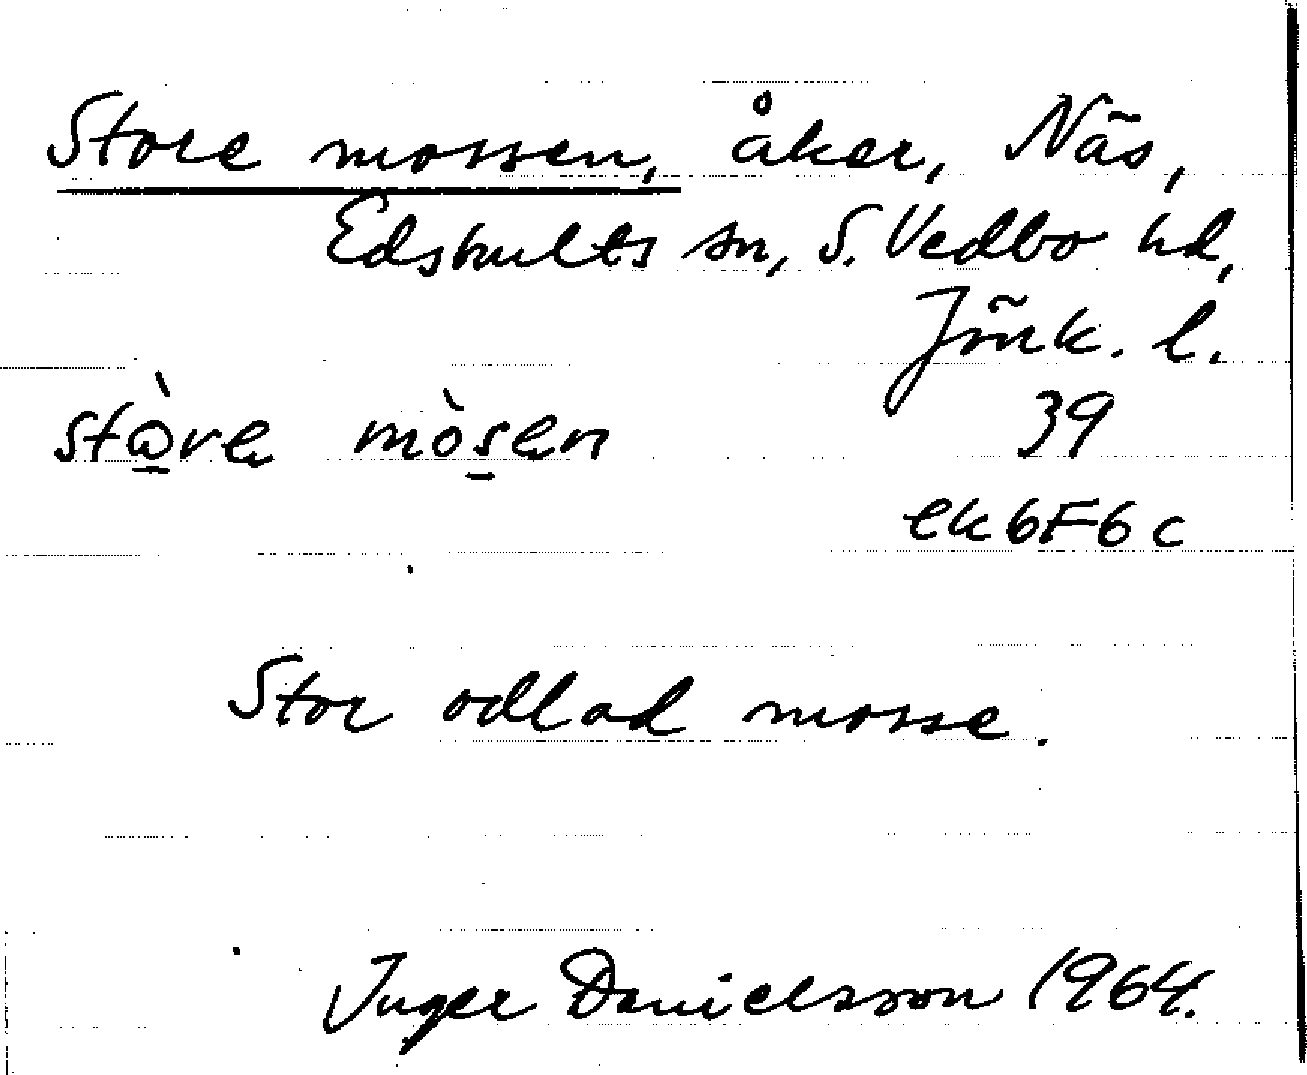 Store mossen, åker, Näs,
Edshults sn, S. Vedbo hd,
Jönk. l.
stòre mòsen 39
ek 6F6c
Stor odlad mosse.
Inger Danielsson 1964.